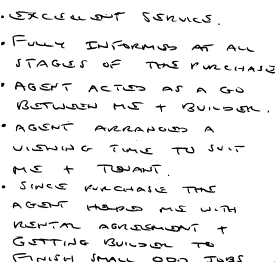 · EXCELLENT SERVICE.
· FULLY INFORMED AT ALL
STAGES OF THE PURCHASE
· AGENT ACTED AS A GO
BETWEEN ME + BUILDER.
· AGENT ARRANGED A
VIEWING TIME TO SUIT
ME + TENANT.
· SINCE PURCHASE THE
AGENT HELPED ME WITH
RENTAL AGREEMENT +
GETTING BUILDER TO
FINISH SMALL ODD JOBS.